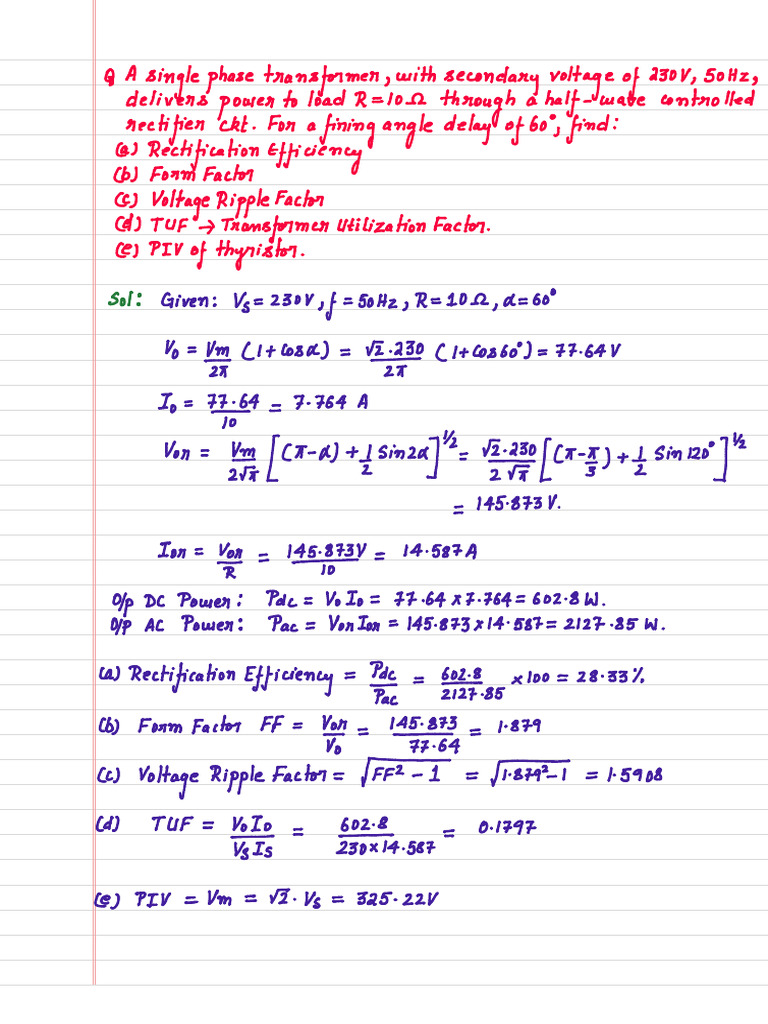 Q A single phase transformer, with secondary voltage of 230V, 50Hz,
delivers power to load R=10Ω through a half-wave controlled
rectifier ckt. For a fining angle delay of 60°, find:
(a) Rectification Efficiency
(b) Form Factor
(c) Voltage Ripple Factor
(d) TUF → Transformer Utilization Factor.
(e) PIV of thyristor.
Sol: Given: Vs = 230V, f = 50Hz, R = 10Ω, α = 60°
V0 = Vm/2π (1+cosα) = √2·230/2π (1+cos60°) = 77.64V
I0 = 77.64/10 = 7.764 A
Vor = Vm/2√π [(π-α)+1/2 Sin2α]^1/2 = √2·230/2√π [(π-π/3)+1/2 Sin120°]^1/2
= 145.873V.
Ior = Vor/R = 145.873V/10 = 14.587A
O/p DC Power: Pdc = V0 I0 = 77.64 x 7.764 = 602.8 W.
O/p AC Power: Pac = Vor Ior = 145.873 x 14.587 = 2127.85 W.
(a) Rectification Efficiency = Pdc/Pac = 602.8/2127.85 x 100 = 28.33%
(b) Form Factor FF = Vor/V0 = 145.873/77.64 = 1.879
(c) Voltage Ripple Factor = √FF²-1 = √1.879²-1 = 1.5908
(d) TUF = V0 I0/Vs Is = 602.8/230x14.587 = 0.1797
(e) PIV = Vm = √2·Vs = 325.22V